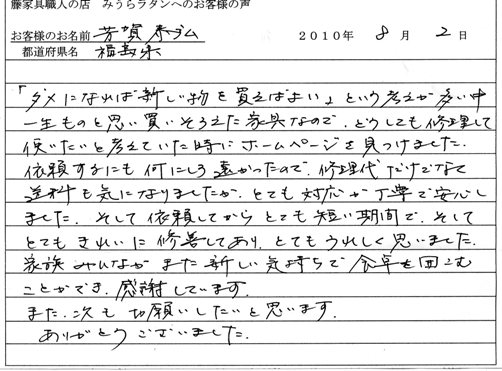 藤家具職人の店　みうらラタンへのお客様の声
お客様のお名前　芳賀
2010年 8月 2日
都道府県名　福島県
「ダメになれば新しい物を買えばよい」という考えが多い中
一生ものと思い買いそろえた家具なので、どうしても修理して
使いたいと考えていた時にホームページを見つけました。
依頼するにも何にしろ遠かったので、修理代だけでなく
送料も気になりましたが、とても対応が丁寧で安心し
ました。そして依頼してからとても短い期間で、そして
とてもきれいに修善してあり、とてもうれしく思いました。
家族みんながまた新しい気持ちで食卓を囲こむ
ことができ、感謝しています。
また、次もお願いしたいと思います。
ありがとうございました。